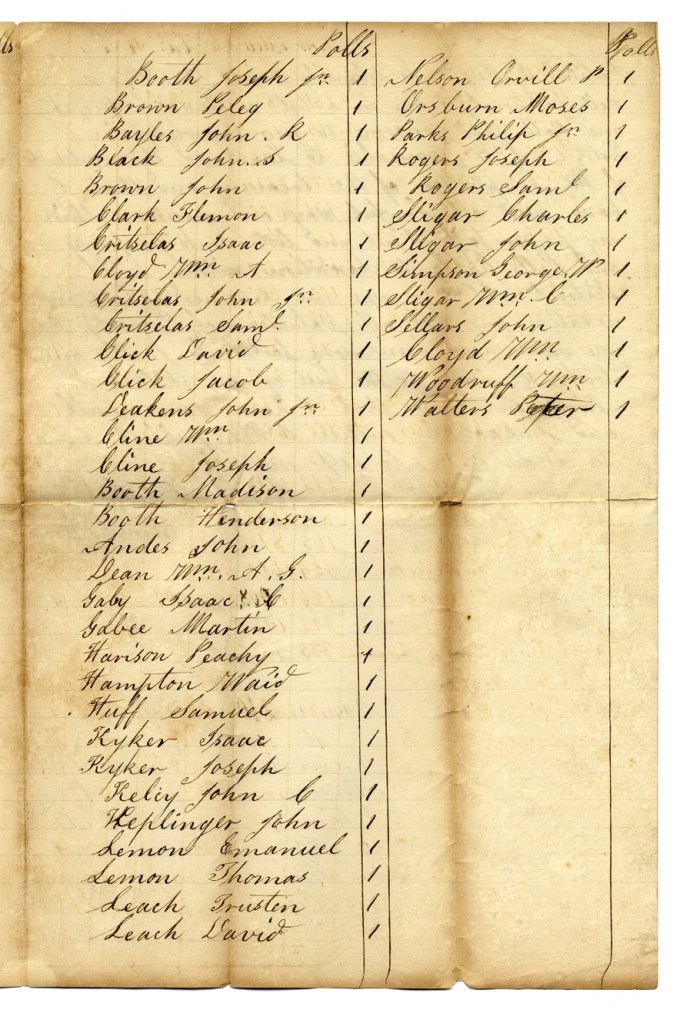 lls
Polls
Booth Joseph Jr. 1
Brown Peleg 1
Bayles John. R 1
Black John. S 1
Brown John 1
Clark Flemon 1
Critselas Isaac 1
Cloyd Wm A 1
Critselas John Jr. 1
Critselas Saml. 1
Click David 1
Click Jacob 1
Deakens John Jr. 1
Cline Wm 1
Cline Joseph 1
Booth Madison 1
Booth Henderson 1
Andes John 1
Dean Wm. A. G. 1
Gaby Isaac C 1
Gabee Martin 1
Harison Peachy 1
Hampton Waid 1
Huff Samuel 1
Kyker Isaac 1
Kyker Joseph 1
Keliy John C 1
Keplinger John 1
Lemon Emanuel 1
Lemon Thomas 1
Leach Trusten 1
Leach David 1
Polls
Nelson Orvill P 1
Orsburn Moses 1
Parks Philip Jr. 1
Rogers Joseph 1
Rogers Saml 1
Sligar Charles 1
Sligar John 1
Simpson George. W 1
Sligar Wm. C 1
Sellars John 1
Cloyd Wm 1
Woodruff Wm 1
Walters Peter 1